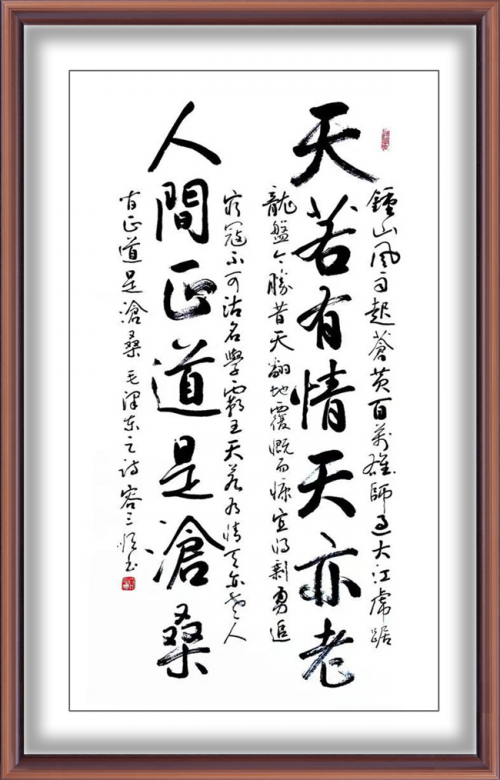 鍾山風雨起蒼黃百萬雄師過大江虎踞
天若有情天亦老
龍盤今勝昔天翻地覆慨而慷宜將剩勇追
窮寇不可沽名學霸王天若有情天亦老人
人間正道是滄桑
間正道是滄桑 毛澤東之詩